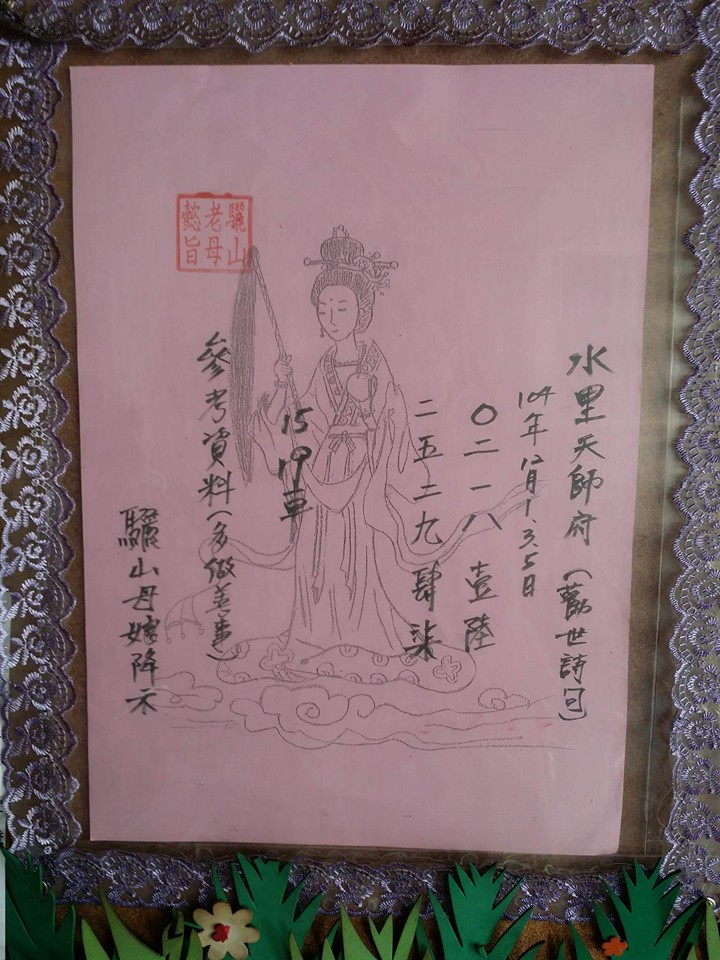 水里天師府（勸世詩句）
104年12月1、3、5日
〇二一八 壹陸
二五二九 肆柒
15 19
參考資料（多做善事）
驪山母娘降示
驪山
老母
懿旨